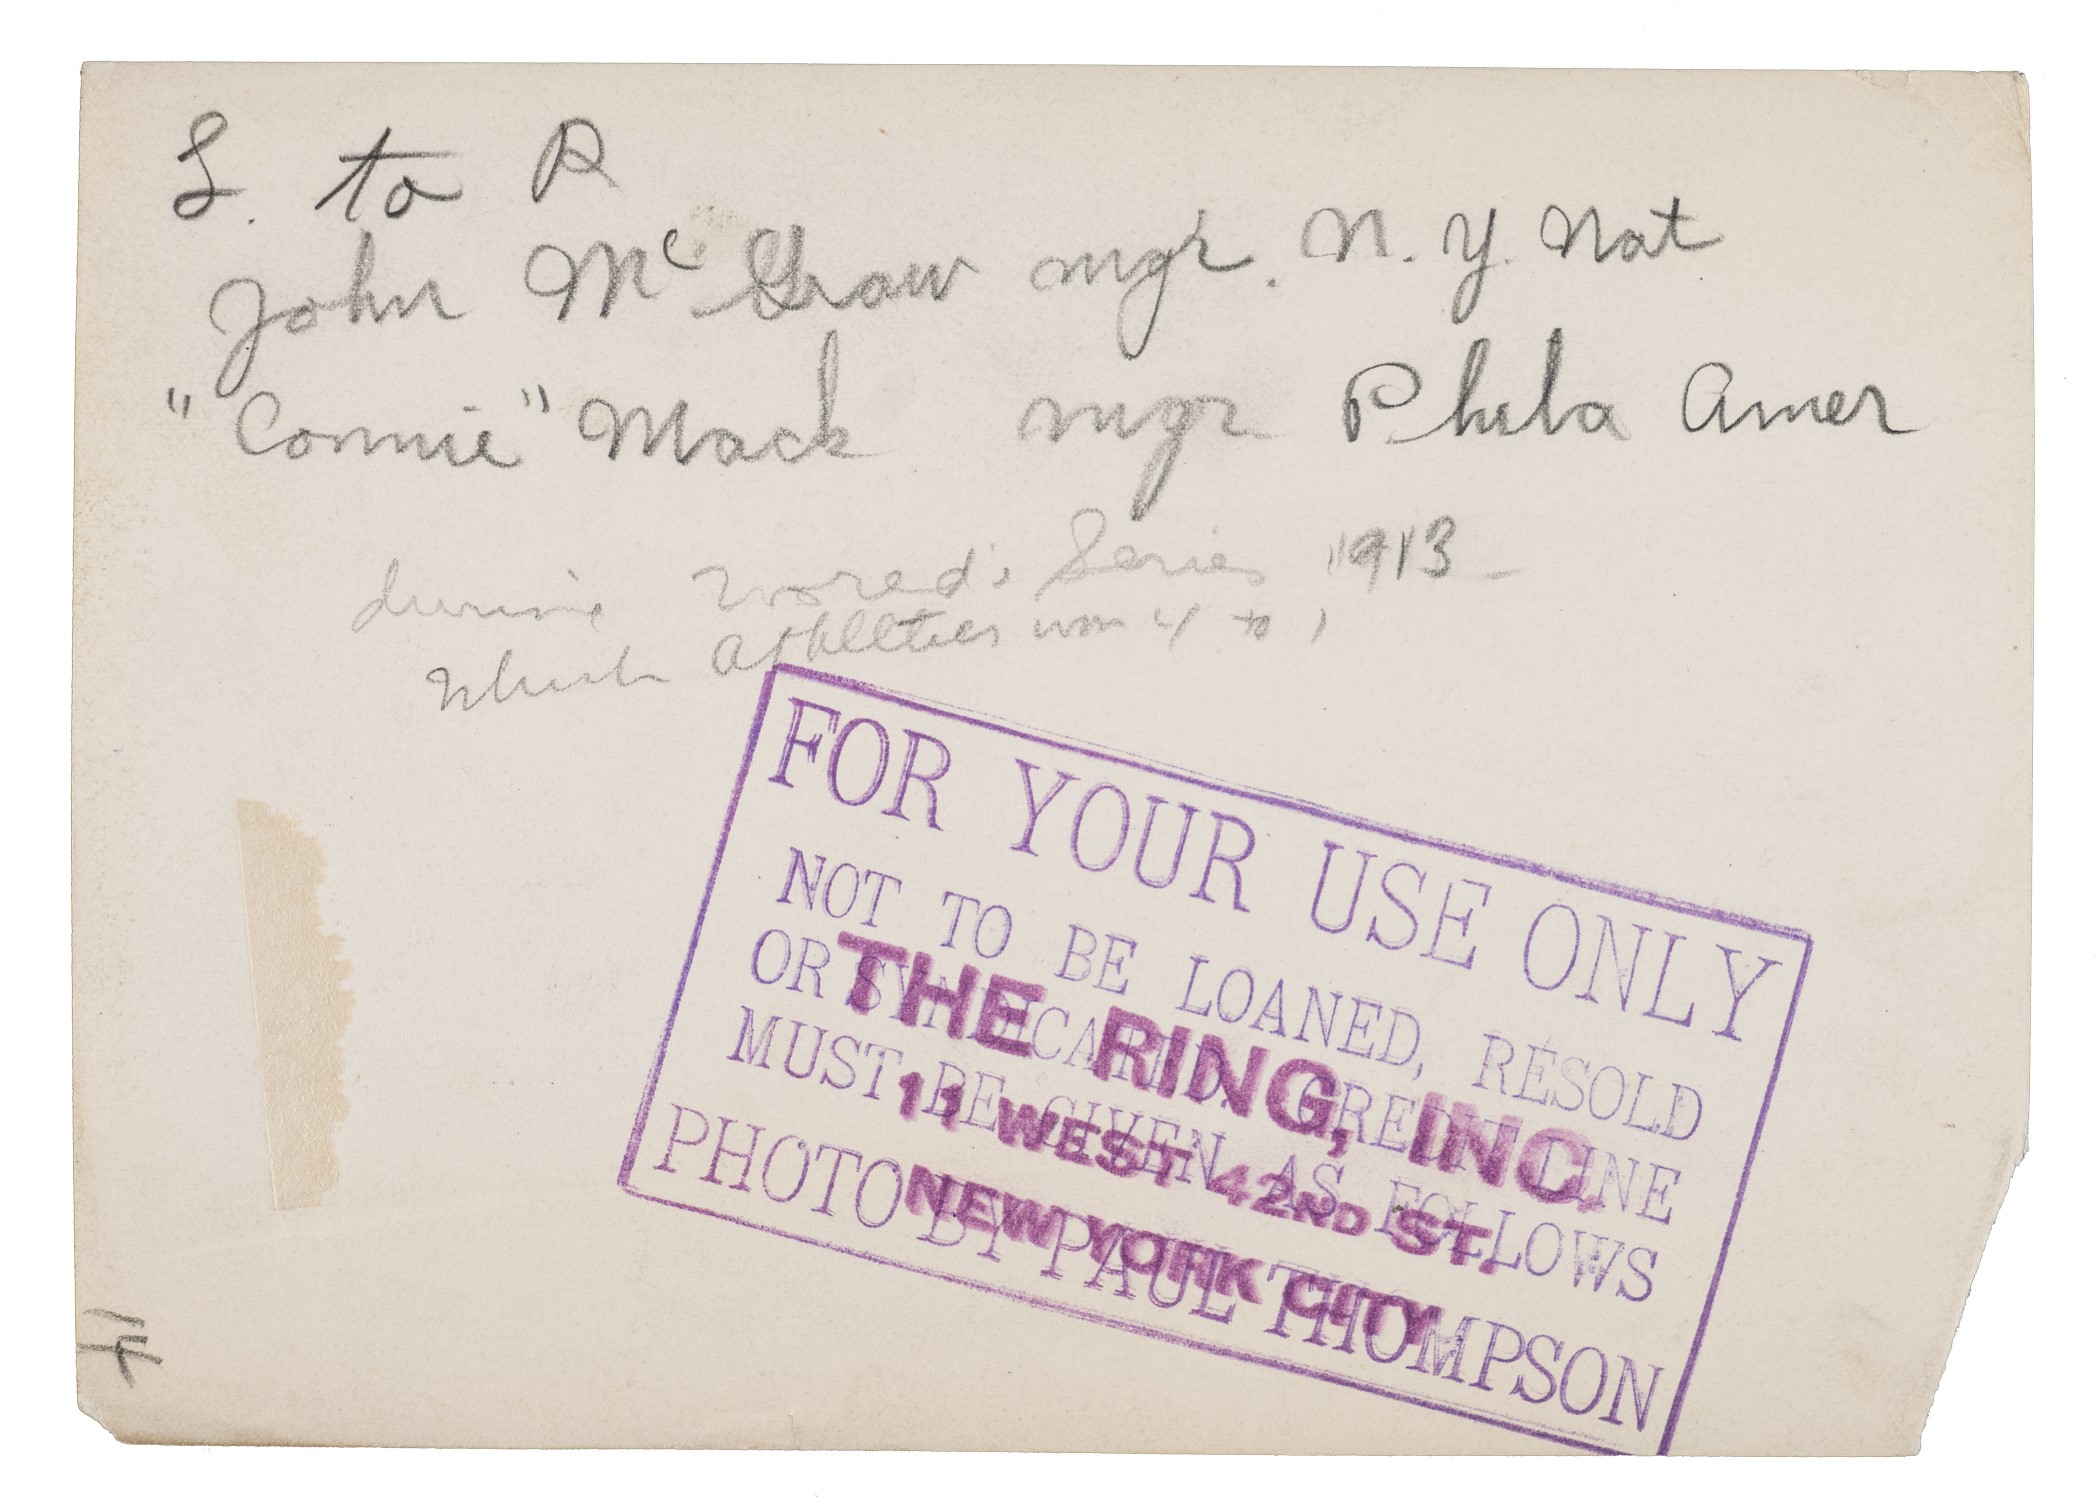 L. to R
John McGraw mgr. N. Y. Nat
"Connie" Mack mgr Phila Amer
during World's Series 1913 -
Which Athletics won 4 to 1
FOR YOUR USE ONLY
NOT TO BE LOANED, RESOLD
OR SYNDICATED. CREDIT LINE
MUST BE GIVEN AS FOLLOWS
PHOTO BY PAUL THOMPSON
THE RING, INC.
11 WEST 42ND ST.
NEW YORK CITY